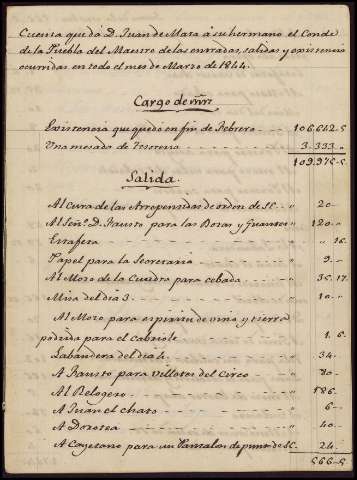 Cuenta que dá D. Juan de Mata á su hermano el Conde
de la Puebla del Maestre de las entradas, salidas y existencia
ocurridas en todo el mes de Marzo de 1844.
Cargo de
Existencia que quedo en fin de Febrero 106.642-5
Una mesada de Tesoreria 3.333
109.975-5
Salida
Al Cura de las Arrepentidas de orden de SC. " 20-
Al Señ.º D. Fausto para las Botas y Guantes 120-
Estafeta " 16.
Papel para la Secretaria " 9-
Al Mozo de la Cuadra para cebada " 35.17.
Misa del dia 3 " 10-
Al Mozo para espiritu de vino y tierra
podrida para el cabriolé 1.6.
Labandera del dia 4 " 34-
A Fausto para villetes del Circo " 80-
Al Relogero " 186-
A Juan el chato " 6-
A Dorotea " 40-
A Cayetano para un Pantalon de punto de SC. 24-
566-5